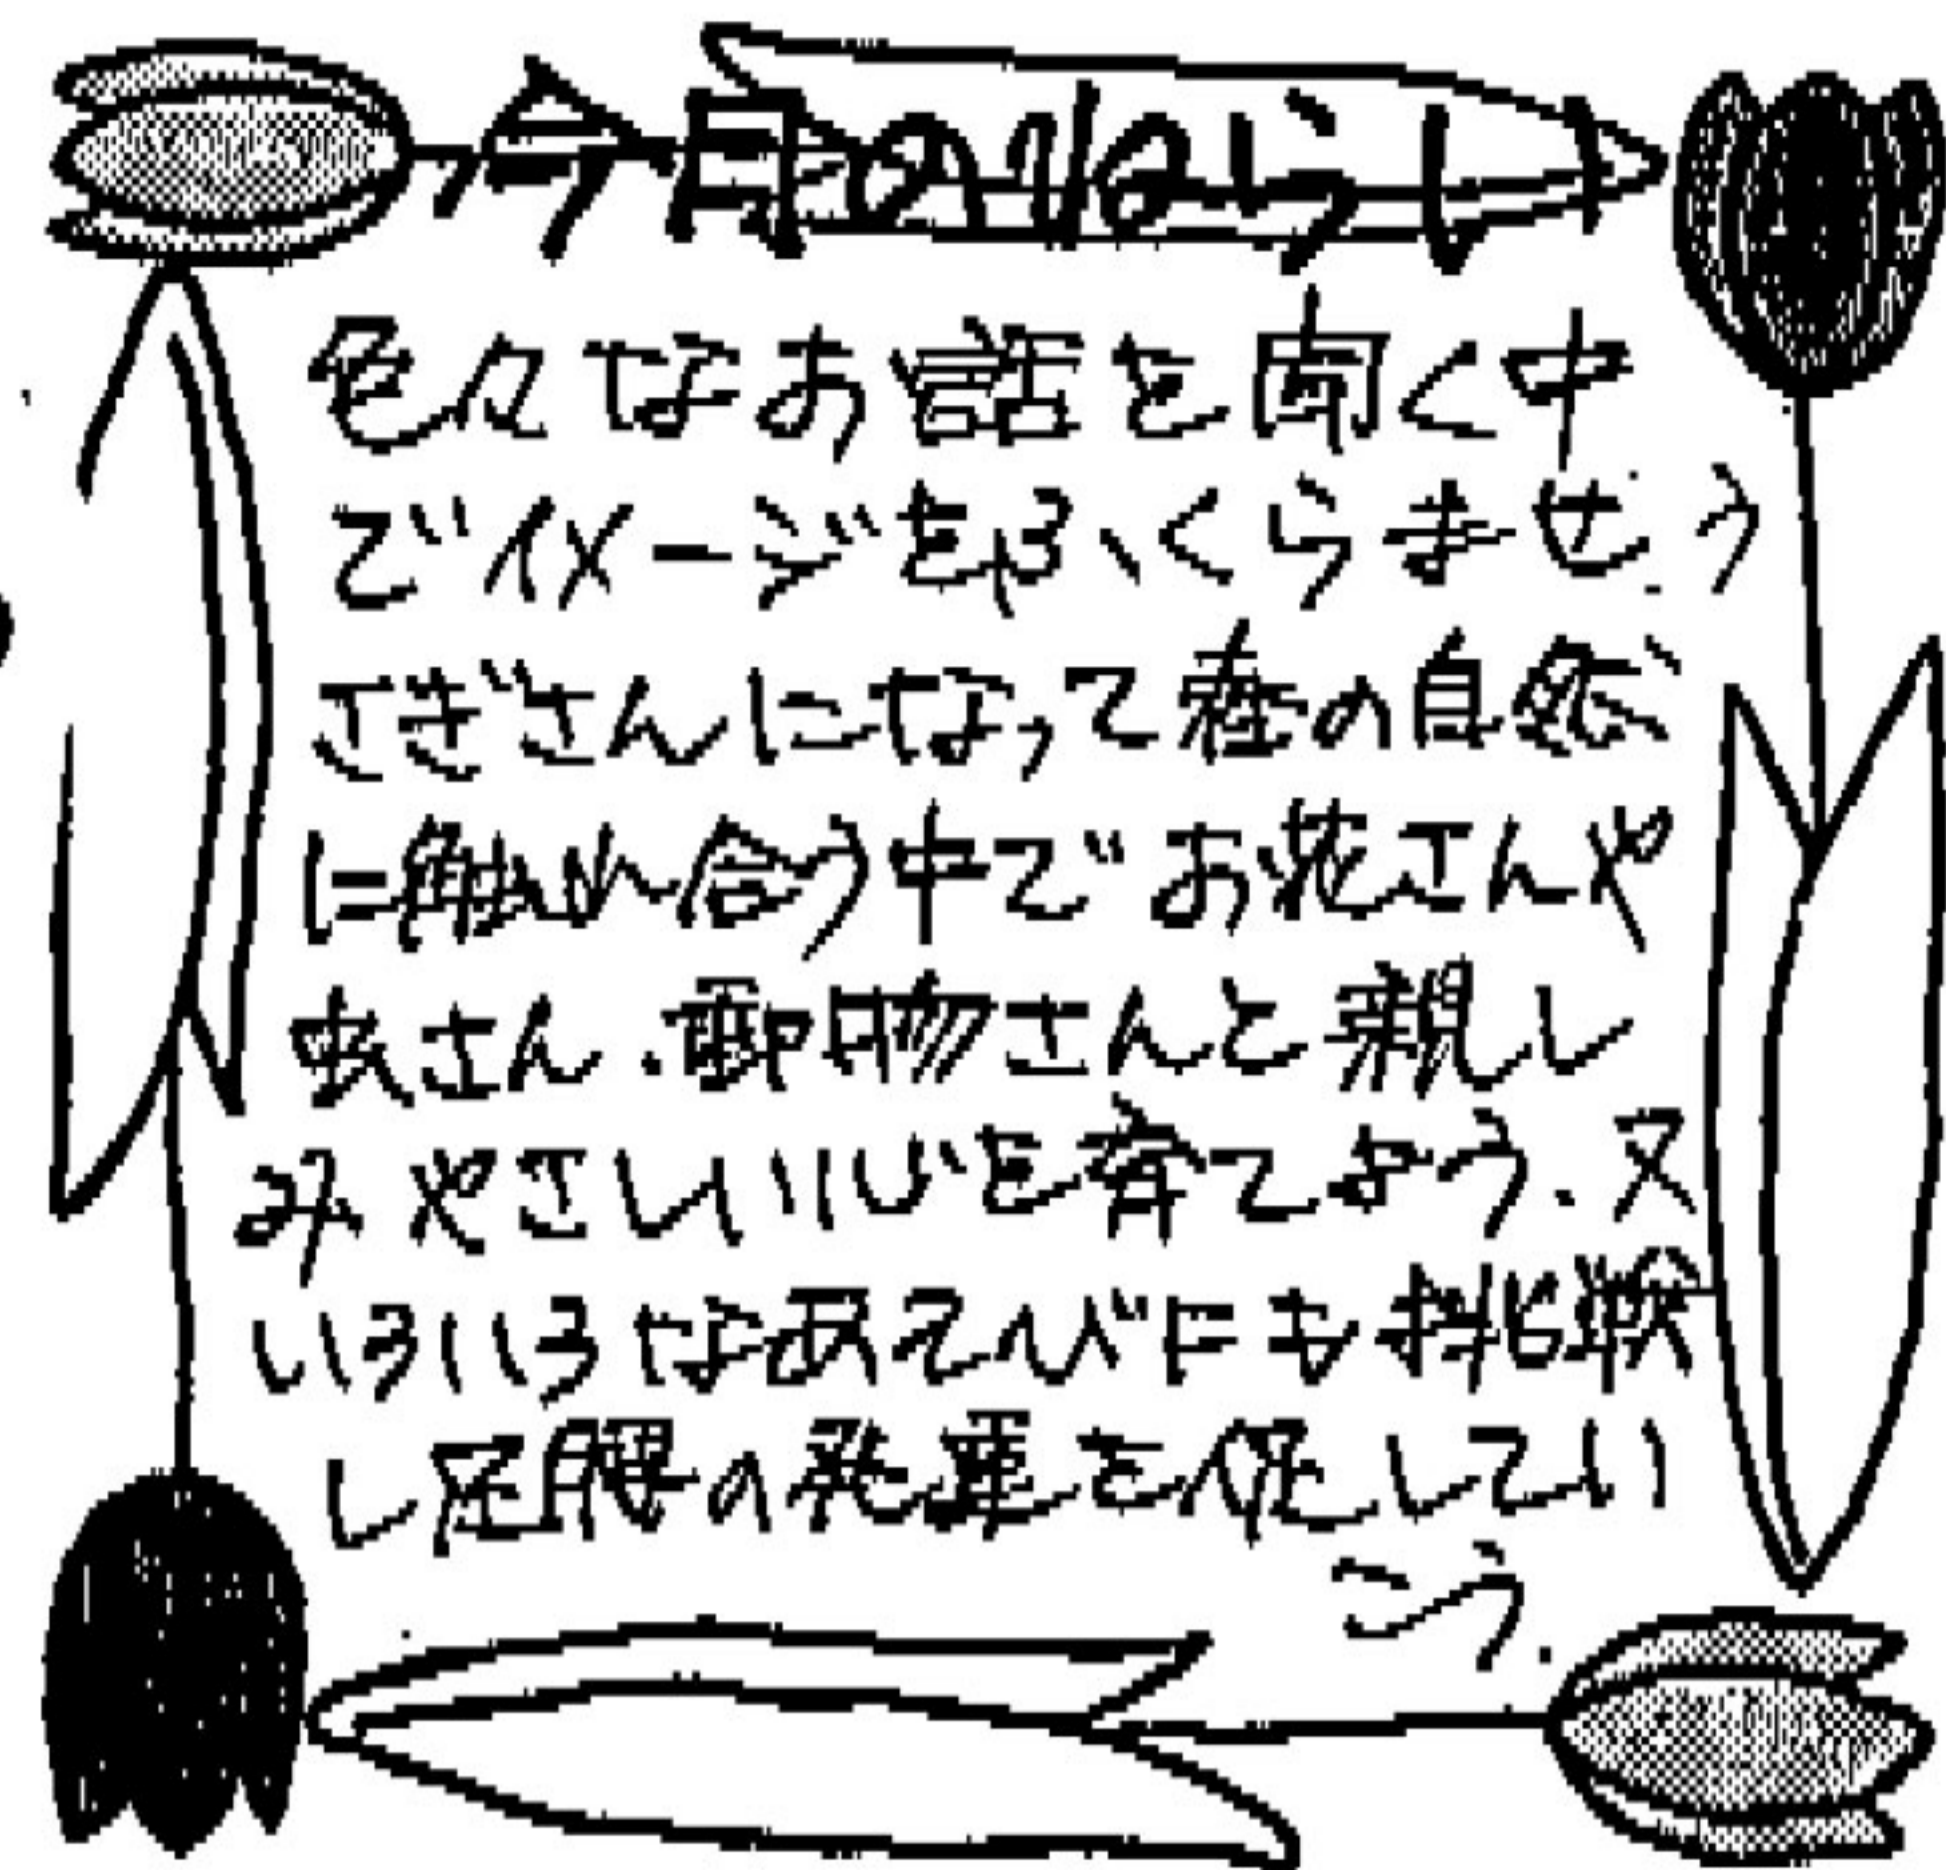 今月のねらい
色々なお話を聞く中
でイメージをふくらませ.う
さぎさんになって春の自然
に触れ合う中でお花さんや
虫さん.動物さんと親し
みやさしい心を育てよう.又
いろいろなあそびにも挑戦
し足腰の発達を促してい
こう.